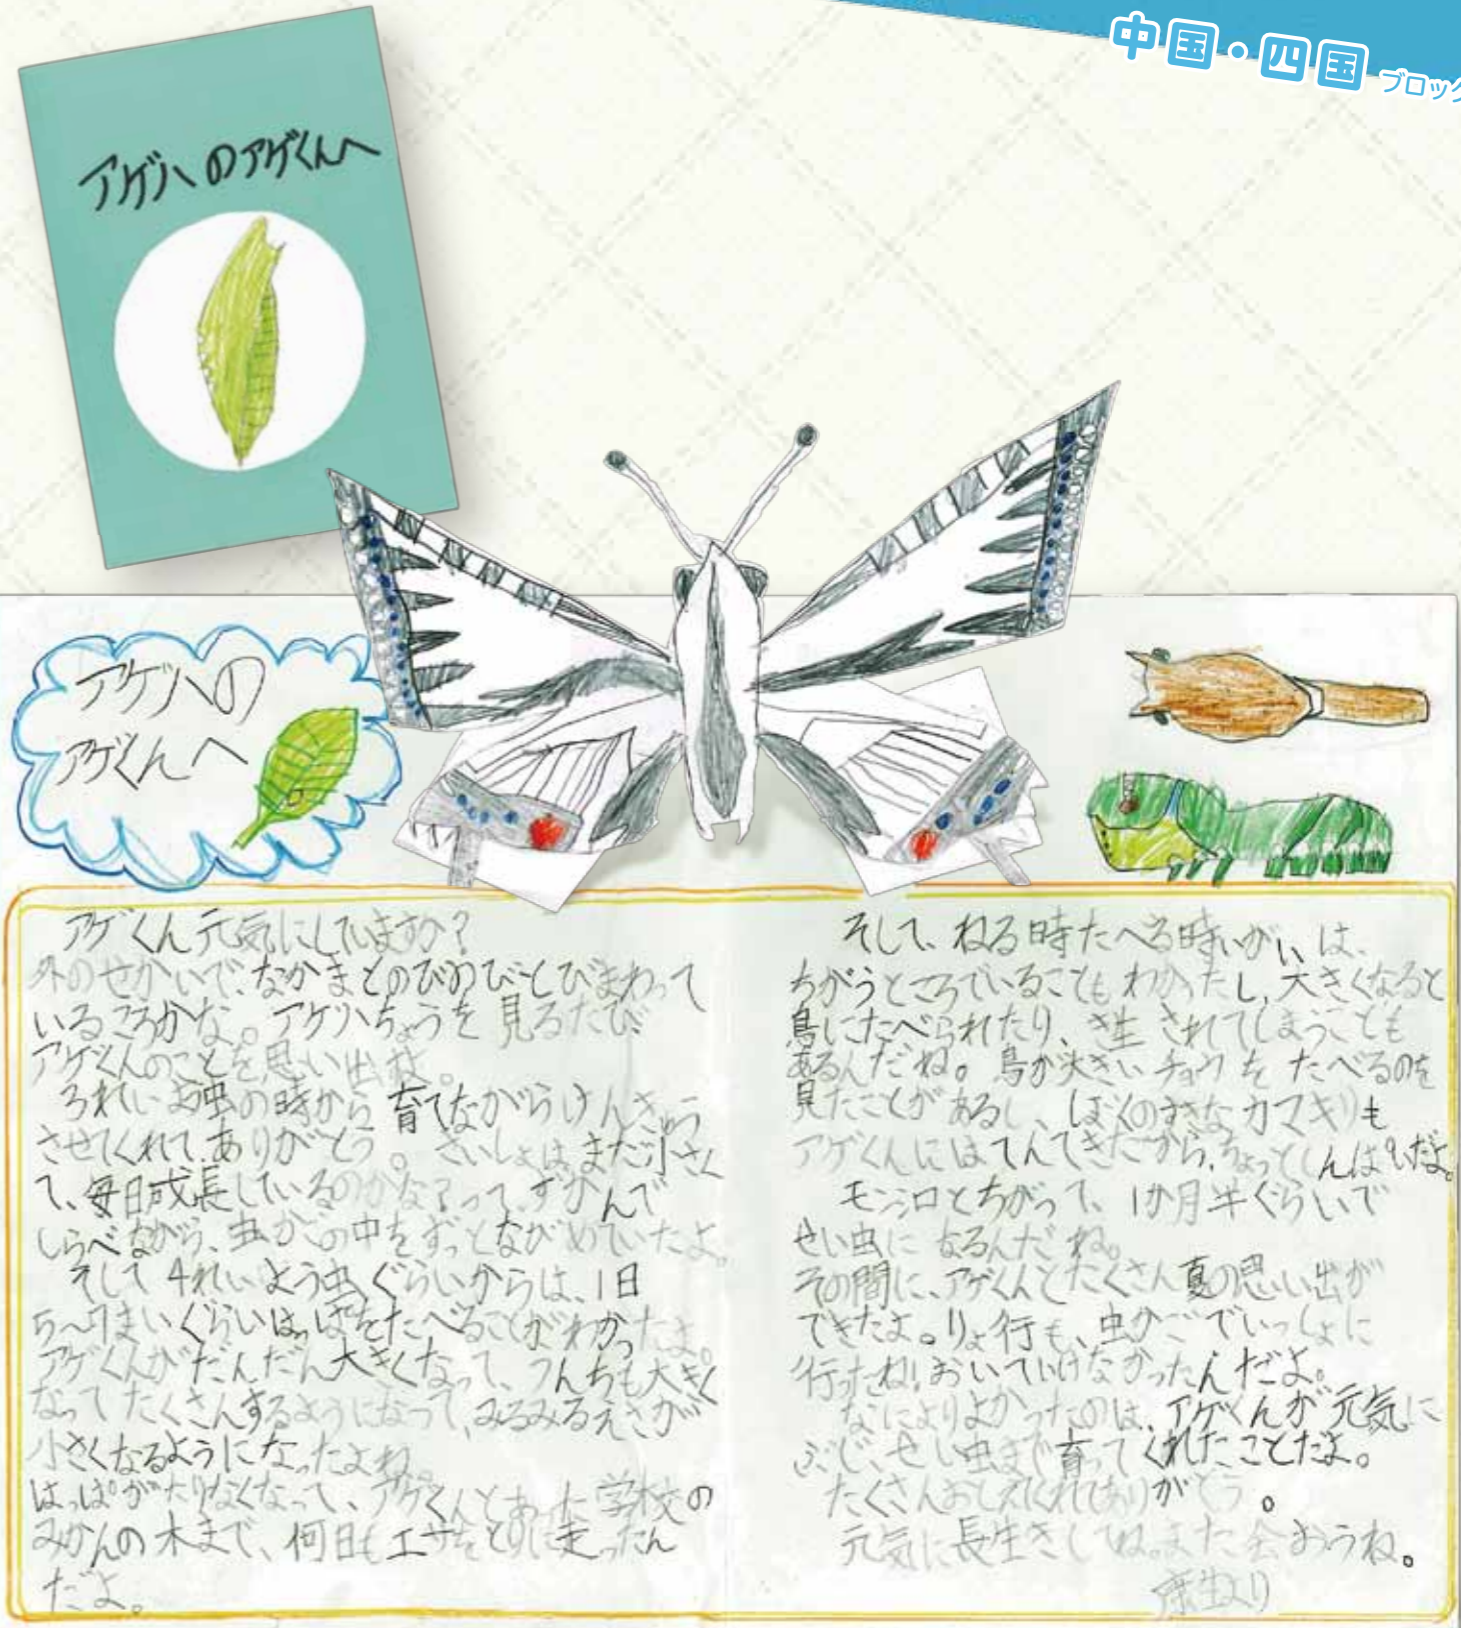 中国・四国 ブロック
アゲハのアゲくんへ
アゲハの
アゲくんへ
アゲくん元気にしていますか?
外のせかいで、なかまとのびのびとびまわって
いるころかな。アゲハちょうを見るたび
アゲくんのことを思い出すよ。
3れいよう虫の時から育てながらけんきゅう
させてくれて、ありがとう。さいしょは、まだ小さく
て、毎日成長しているのかな?って、ずかんで
しらべながら、虫かごの中をずっとながめていたよ。
そして4れいよう虫ぐらいからは、1日
5〜7まいぐらいはっぱをたべることがわかったよ。
アゲくんがだんだん大きくなって、うんちも大きく
なってたくさんするようになって、みるみるえさが
小さくなるようになったよね。
はっぱがたりなくなって、アゲくんとあった学校の
みかんの木まで、何日もエサをとりに走ったん
だよ。
そして、ねる時たべる時いがいは、
ちがうところでいることもわかったし、大きくなると
鳥にたべられたり、き生されてしまうことも
あるんだね。鳥が大きいチョウをたべるのを
見たことがあるし、ぼくのすきなカマキリも
アゲくんにはてんてきだから、ちょっとしんぱいだよ。
モンシロとちがって、1か月半ぐらいで
せい虫になるんだね。
その間に、アゲくんとたくさん夏の思い出が
できたよ。りょ行も、虫かごでいっしょに
行ったね!おいていけなかったんだよ。
なによりよかったのは、アゲくんが元気に
ぶじ、せい虫まで育ってくれたことだよ。
たくさんおしえてくれてありがとう。
元気に長生きしてね。また会おうね。
より